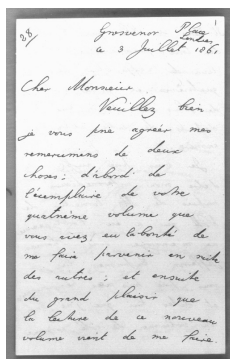 28/ Grosvenor Place
Londres
ce 3 Juillet 1861
Cher Monsieur
Veuillez bien
je vous prie agréer mes
remerciemens de deux
choses; d'abord de
l'exemplaire de votre
quatrième volume que
vous avez eu la bonté de
me faire parvenir en suite
des autres; et ensuite
du grand plaisir que
la lecture de ce nouveau
volume vient de me faire